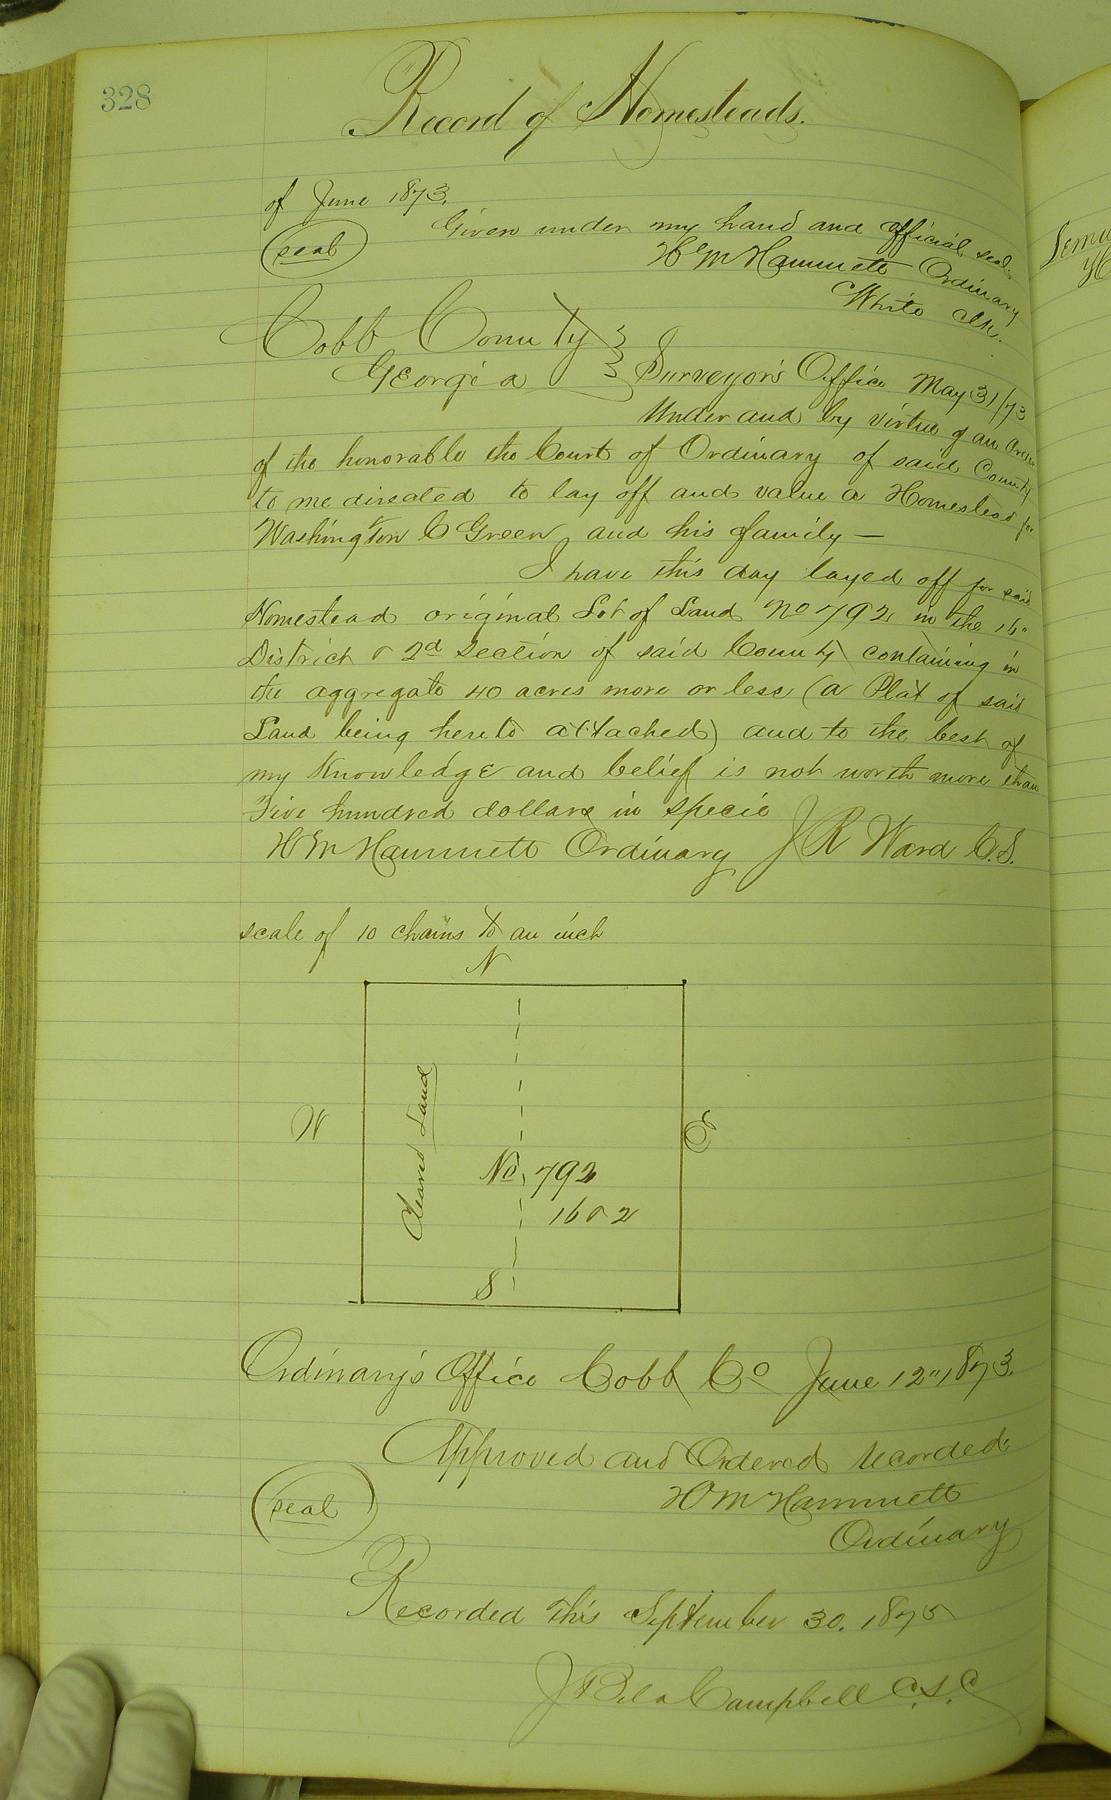 328
Record of Homesteads.
of June 1873.
Given under my hand and official seal.
(seal)
H M Hammett Ordinary
Cobb County
Georgia
Surveyor's Office May 31/73
Under and by virtue of an Order
of the honorable the Court of Ordinary of said County
to me directed to lay off and value a Homestead for
Washington C Green and his family —
I have this day layed off for said
Homestead original Lot of Land No 792 in the 16"
District & 2d Section of said County containing in
the aggregate 40 acres more or less (a Plat of said
Land being hereto attached) and to the best of
my Knowledge and belief is not worth more than
Five hundred dollars in Specie
H M Hammett Ordinary J R Ward C.S.
scale of 10 chains to an inch
N
W
Cleared Land
E
No. 792
16 & 2
S
Ordinary's Office Cobb Co June 12" 1873.
Approved and Ordered recorded.
(seal)
H M Hammett
Ordinary
Recorded this September 30. 1875
Campbell C.S.C